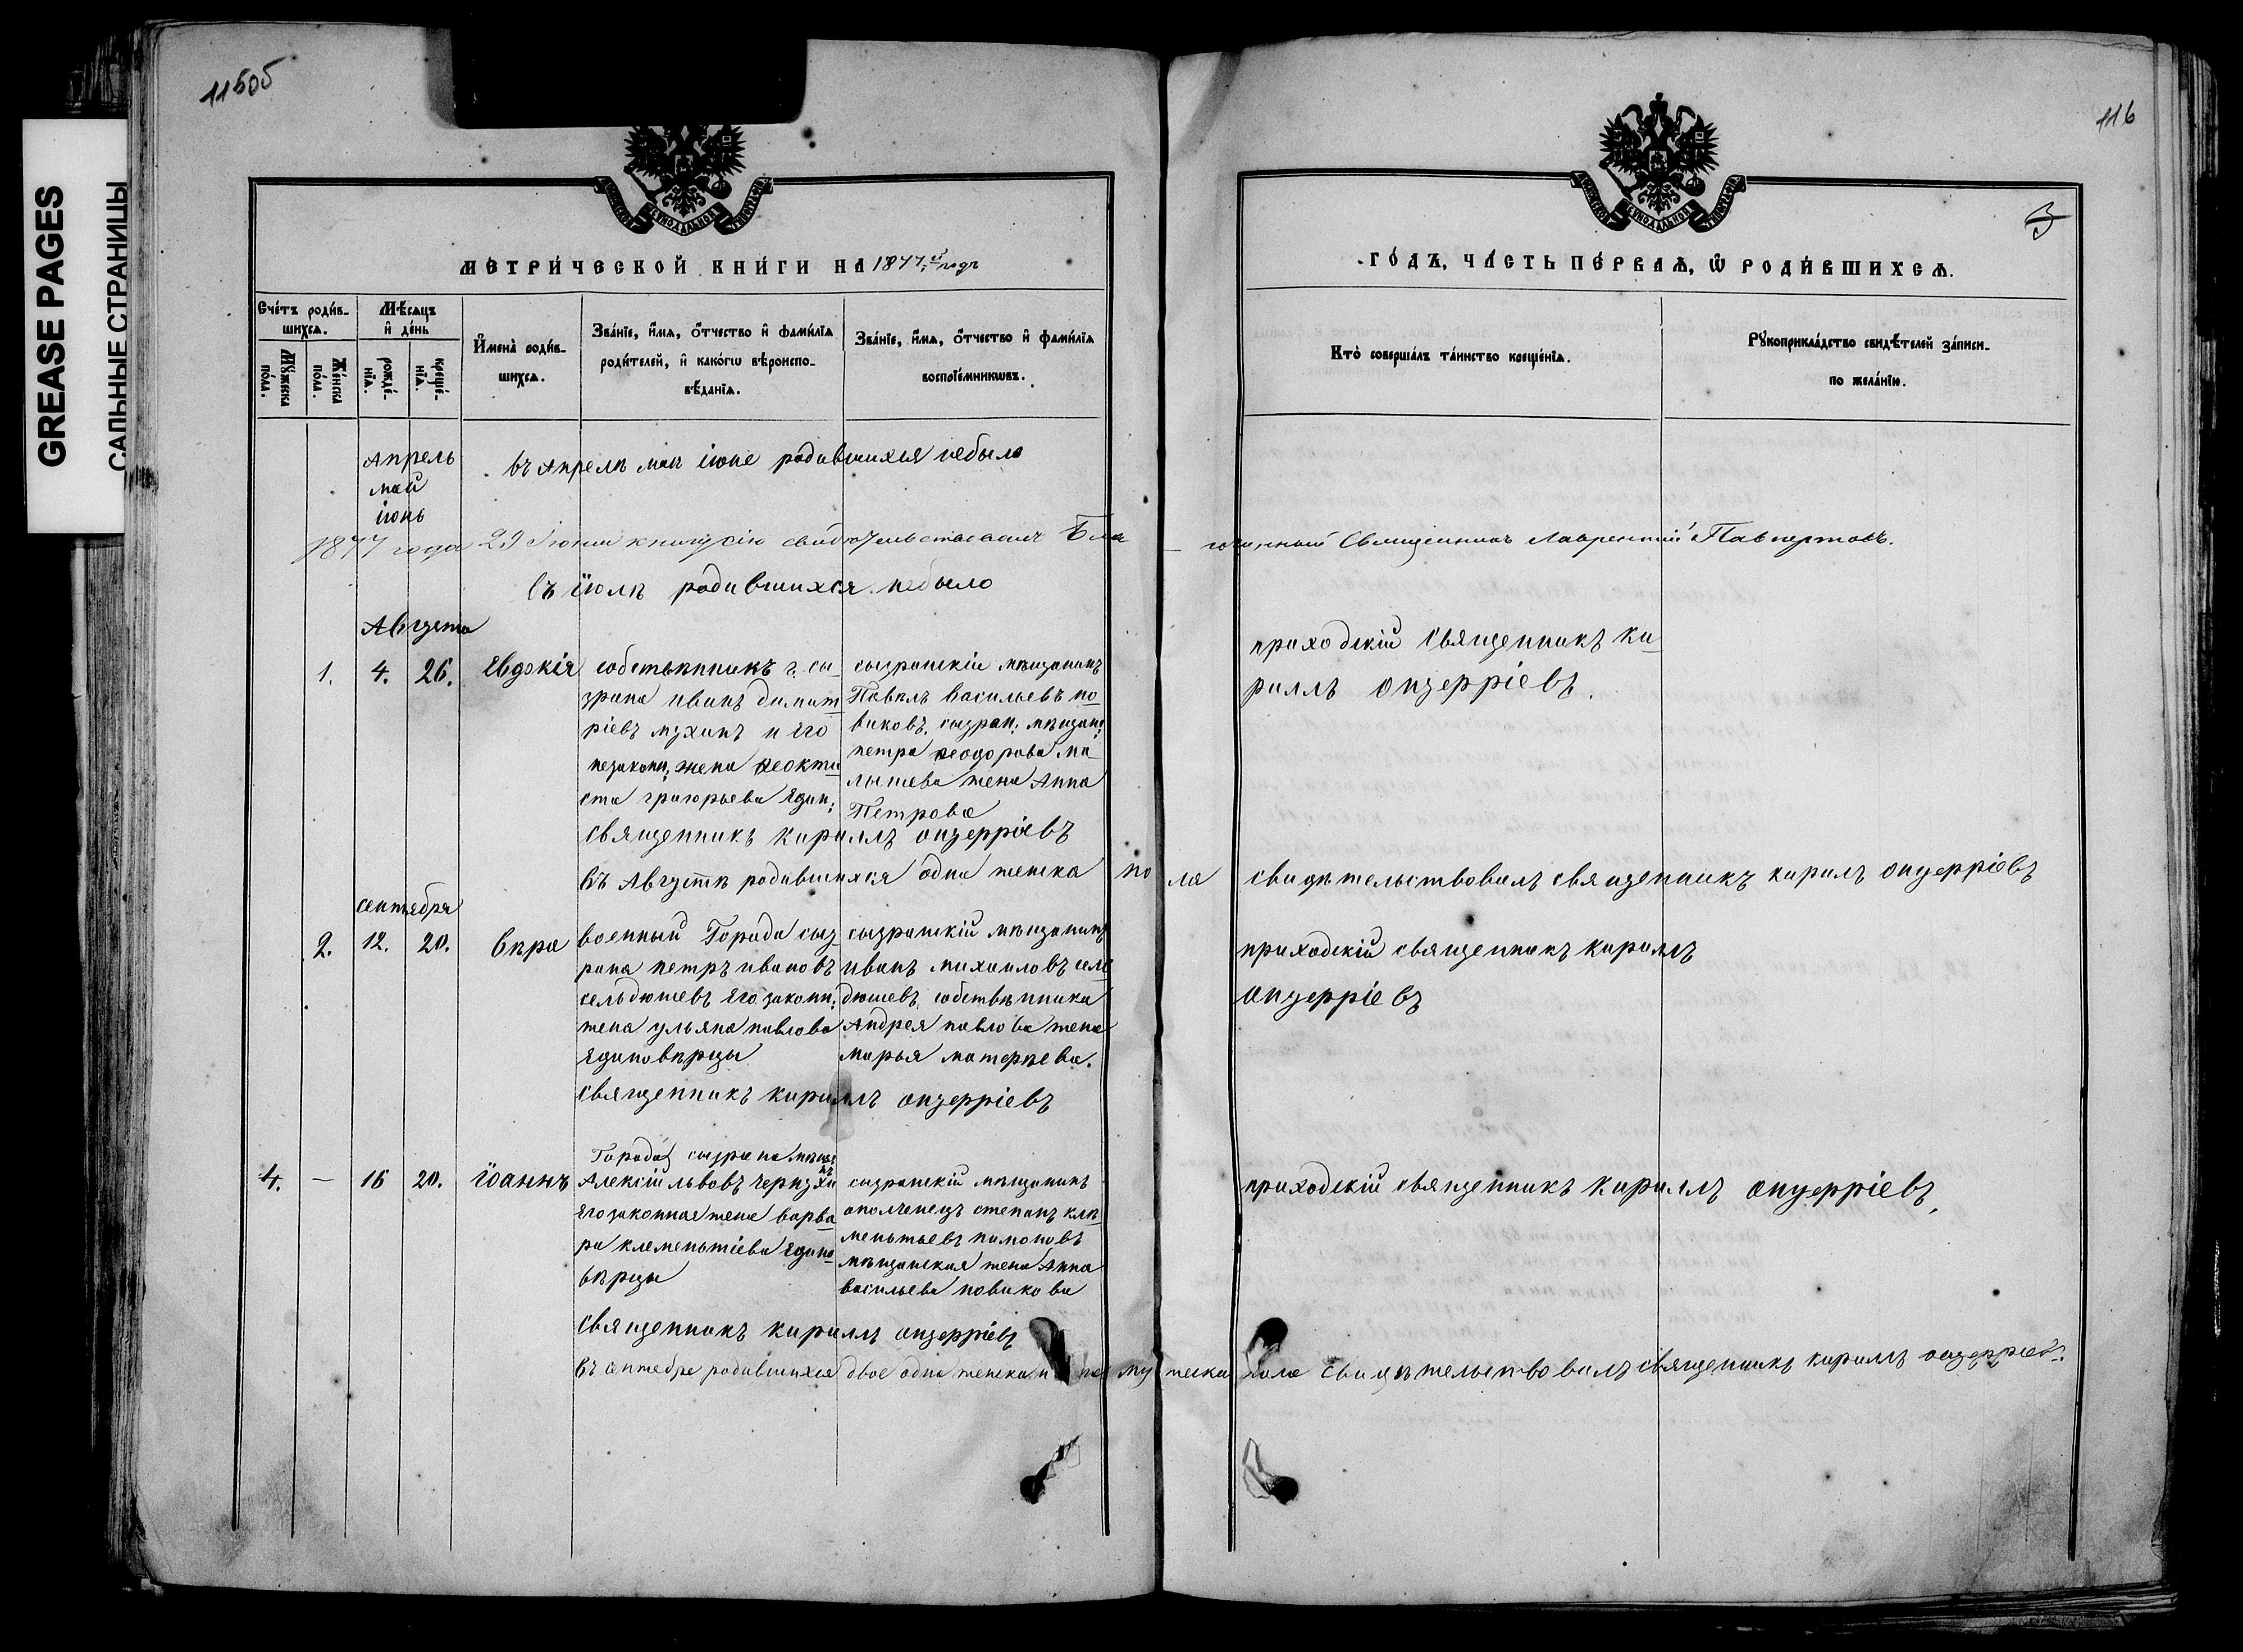 GREASE PAGES
САЛЬНЫЕ СТРАНИЦЫ
115об
116
3
МЕТРИ́ЧЕСКОЙ КНИ́ГИ НА 1877й годъ
ГО́ДЪ, ЧА́СТЬ ПЕ́РВАѦ, Ѿ РОДИ́ВШИХСѦ.
Сче́тъ роди́в-
шихсѧ.
Мѣ́сѧцъ
и҆ де́нь
Мꙋ́жеска
по́ла.
Же́нска
по́ла.
рожде́-
нїѧ.
креще́-
нїѧ.
И҆мена̀ роди́в-
шихсѧ.
Зва́нїе, и҆́мѧ, ѻ҆́тчество и҆ фами́лїѧ
роди́телей, и҆ како́гѡ вѣроиспо-
вѣ́данїѧ.
Зва́нїе, и҆́мѧ, ѻ҆́тчество и҆ фами́лїѧ
воспрїе́мникѡвъ.
Кто̀ соверша́лъ та́инство креще́нїѧ.
Рꙋкоприкла́дство свидѣ́телей за́писи
по жела́нїю.
Апрель
май
іюнь
въ Апрелѣ маѣ іюне родившихся небыло
1877 года 29 Іюня книгу сію свидѣтельствовалъ Бла
гочинный Священникъ Лаврентий
въ іюлѣ родившихся небыло
Августа
1. 4. 26. Евдокія
собствѣнникъ г. сы
зрана иванъ димит
ріевъ мухинъ и его
незаконн: жена Ѳеокти
ста григорьева Един:
сызранскій мѣщанинъ
Павелъ васильевъ но
виковъ. сызран: мѣщан:
петра Ѳеодорова ма
лышева жена Анна
Петрова
приходскій священникъ ки
риллъ онуфріевъ.
священникъ кириллъ онуфріевъ
въ Августѣ родившихся одна женска пола свидѣтельствовалъ священникъ кирилъ онуфріевъ
сентября
2. 12. 20. вѣра
военный Города сыз
рана петръ ивановъ
сельдюшевъ его законн:
жена ульяна павлова
Единовѣрцы
сызранскій мѣщанинъ
иванъ михаиловъ селе
дюшевъ. собствѣнника
Андрея павлова жена
марья матвѣева.
приходскій священникъ кириллъ
онуфріевъ
священникъ кириллъ онуфріевъ
4. — 16 20. іоаннъ
Города сызрана мѣщан
Алексій львовъ
его законная жена варва
ра клементіева Едино
вѣрцы
сызранскій мѣщанинъ
ополченецъ степанъ кле
ментьевъ
мѣщанская жена Анна
васильева новикова
приходскій священникъ кириллъ онуфріевъ.
священникъ кириллъ онуфріевъ
въ сентябре родившихся двое одна женска и мужеска пола свидѣтельствовалъ священникъ кириллъ онуфріевъ.